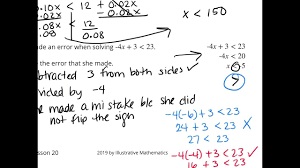 .10x < 12 + 0.02
- 0.02
.08x < 12
.08
0.08
x < 150
de an error when solving -4x + 3 < 23.
the error that she made.
-4x + 3 < 23
-4x < 20
x
5
>
ubtracted 3 from both sides ✓
vided by -4
e made a mistake b/c she did
not flip the sign
-4(-6) + 3 < 23
24 + 3 < 23 X
27 < 23
-4(-4) + 3 < 23
16 + 3 < 23
esson 20
2019 by Illustrative Mathematics